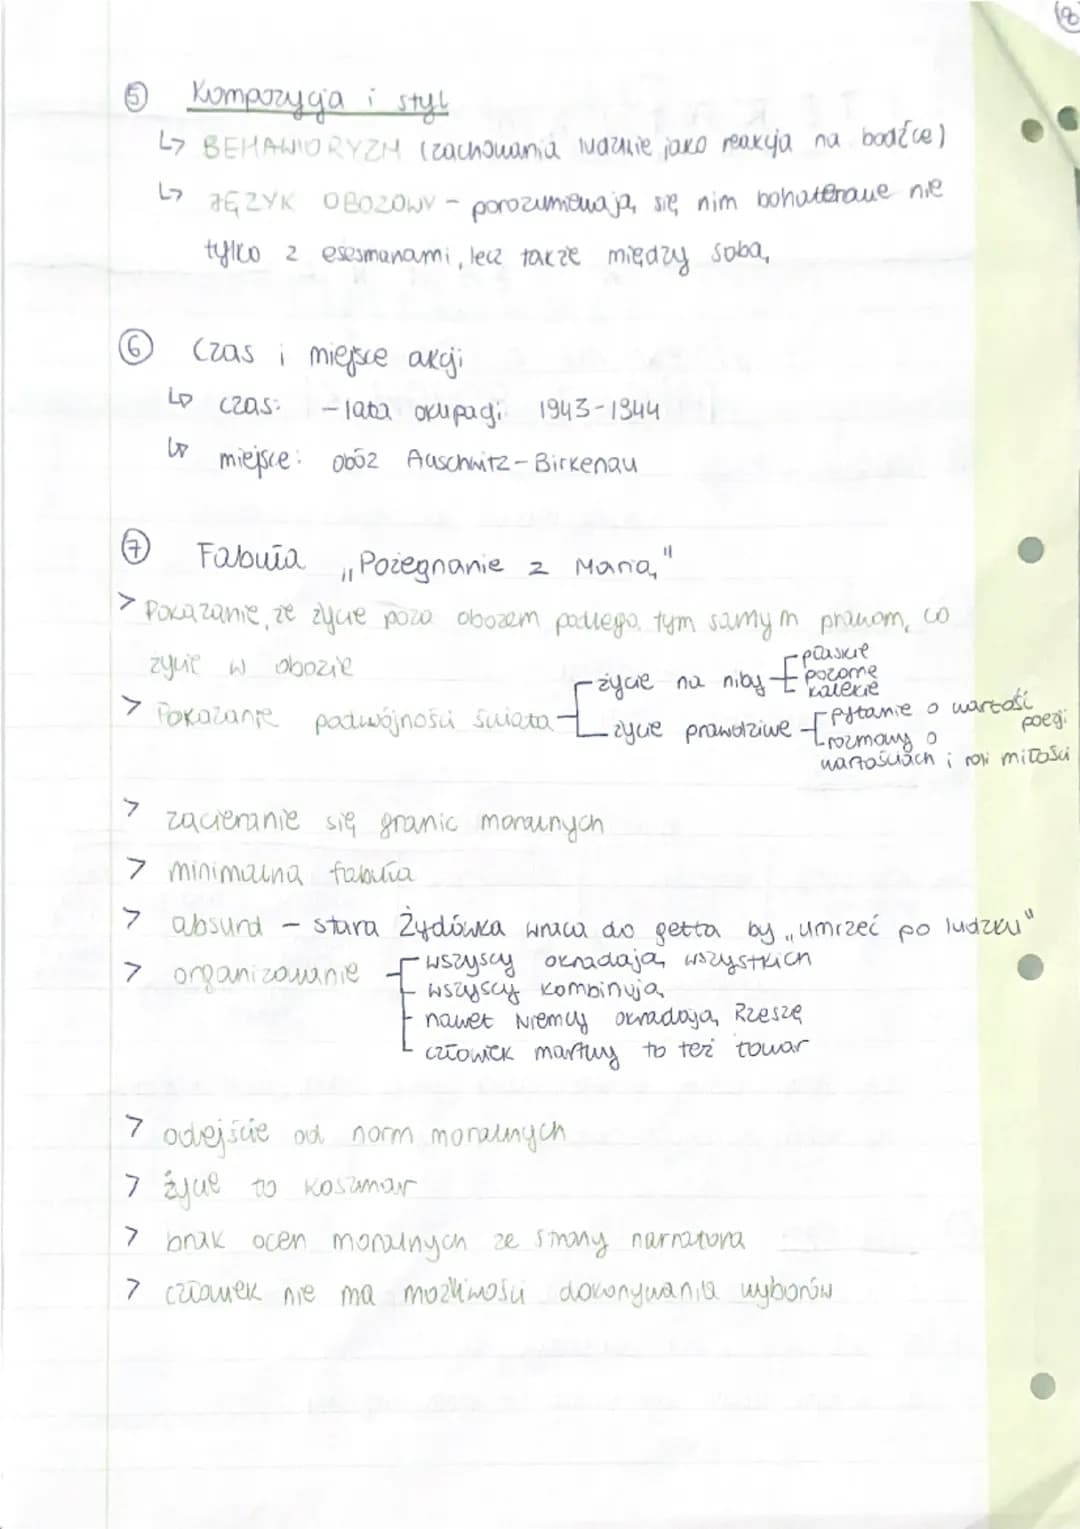 18
⑤ Kompozycja i styl
↳ BEHAWIORYZM (zachowania ludzkie jako reakcja na bodźce)
↳ JĘZYK OBOZOWY - porozumiewają się nim bohaterowie nie
tylko z esesmanami, lecz także między sobą
⑥ Czas i miejsce akcji
↳ czas: - lata okupacji 1943-1944
↳ miejsce: obóz Auschwitz-Birkenau
⑦ Fabuła „Pożegnanie z Marią"
> Pokazanie, że życie poza obozem podlega tym samym prawom, co
życie w obozie
> Pokazanie podwójności świata
życie na niby
płaskie
pozorne
kalekie
życie prawdziwe
pytanie o wartości poezji
rozmowy o
wartościach i roli miłości
> zacieranie się granic moralnych
> minimalna fabuła
> absurd - stara Żydówka wraca do getta by „umrzeć po ludzku"
> organizowanie
wszyscy okradają wszystkich
wszyscy kombinują
nawet Niemcy okradają Rzeszę
człowiek martwy to też towar
> odejście od norm moralnych
> życie to koszmar
> brak ocen moralnych ze strony narratora
> człowiek nie ma możliwości dokonywania wyborów